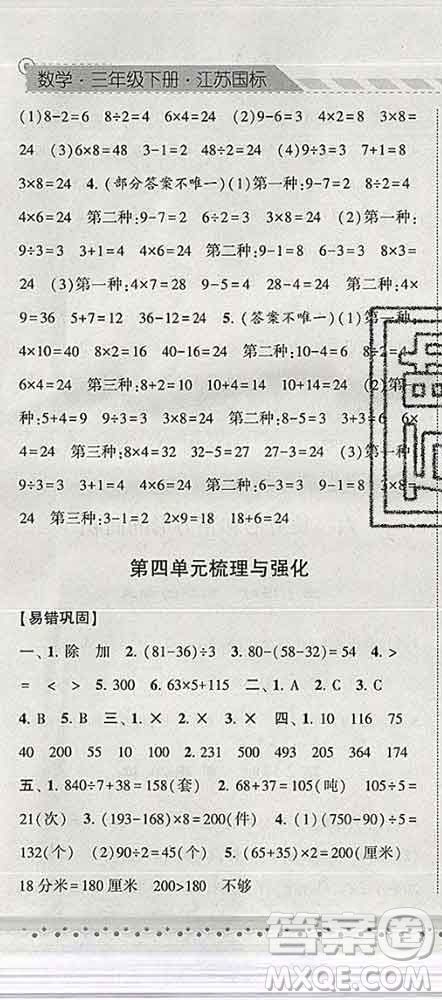 数学·三年级下册·江苏国标
(1)8-2=6 8÷2=4 6×4=24 (2)9-6=3 3×8=
24 (3)6×8=48 3-1=2 48÷2=24 (4)9÷3=3 7+1=8
3×8=24 4.(部分答案不唯一)(1)第一种:9-7=2 8÷2=4
4×6=24 第二种:9-7=2 6÷2=3 8×3=24 (2)第一种:
9÷3=3 3+1=4 4×6=24 第二种:9÷3=3 8×3=
24 (3)第一种:4×7=28 9-5=4 28-4=24 第二种:4×
9=36 5+7=12 36-12=24 5.(答案不唯一)(1)第一种:
4×10=40 8×2=16 40-16=24 第二种:10-4=6 8÷2=4
6×4=24 第三种:8+2=10 10+4=14 10+14=24 (2)第一
种:5+4=9 9÷3=3 3×8=24 第二种:8-5=3 3+3=6 6×
4=24 第三种:8×4=32 32-5=27 27-3=24 (3)第一种:
9÷3=3 3×8=24 8×1=24 第二种:9÷3=3 9-1=8 8×3=
24 第三种:3-1=2 2×9=18 18+6=24
第四单元梳理与强化
[易错巩固]
一、1.除 加 2.(81-36)÷3 3.80-(58-32)=54 4.>
= < > 5.300 6.63×5+115 二、1.A 2.C 3.C
4.B 5.B 三、1.× 2.× 3.× 四、1.10 116 75
40 200 55 10 2.231 500 493 205 364 140
五、1.840÷7+38=158(套) 2.68+37=105(吨) 105÷5=
21(次) 3.(193-168)×8=200(件) 4.(1)(750-90)÷5=
132(个) (2)90÷2=45(个) 5.(65+35)×2=200(厘米)
18分米=180厘米 200>180 不够
答案圈